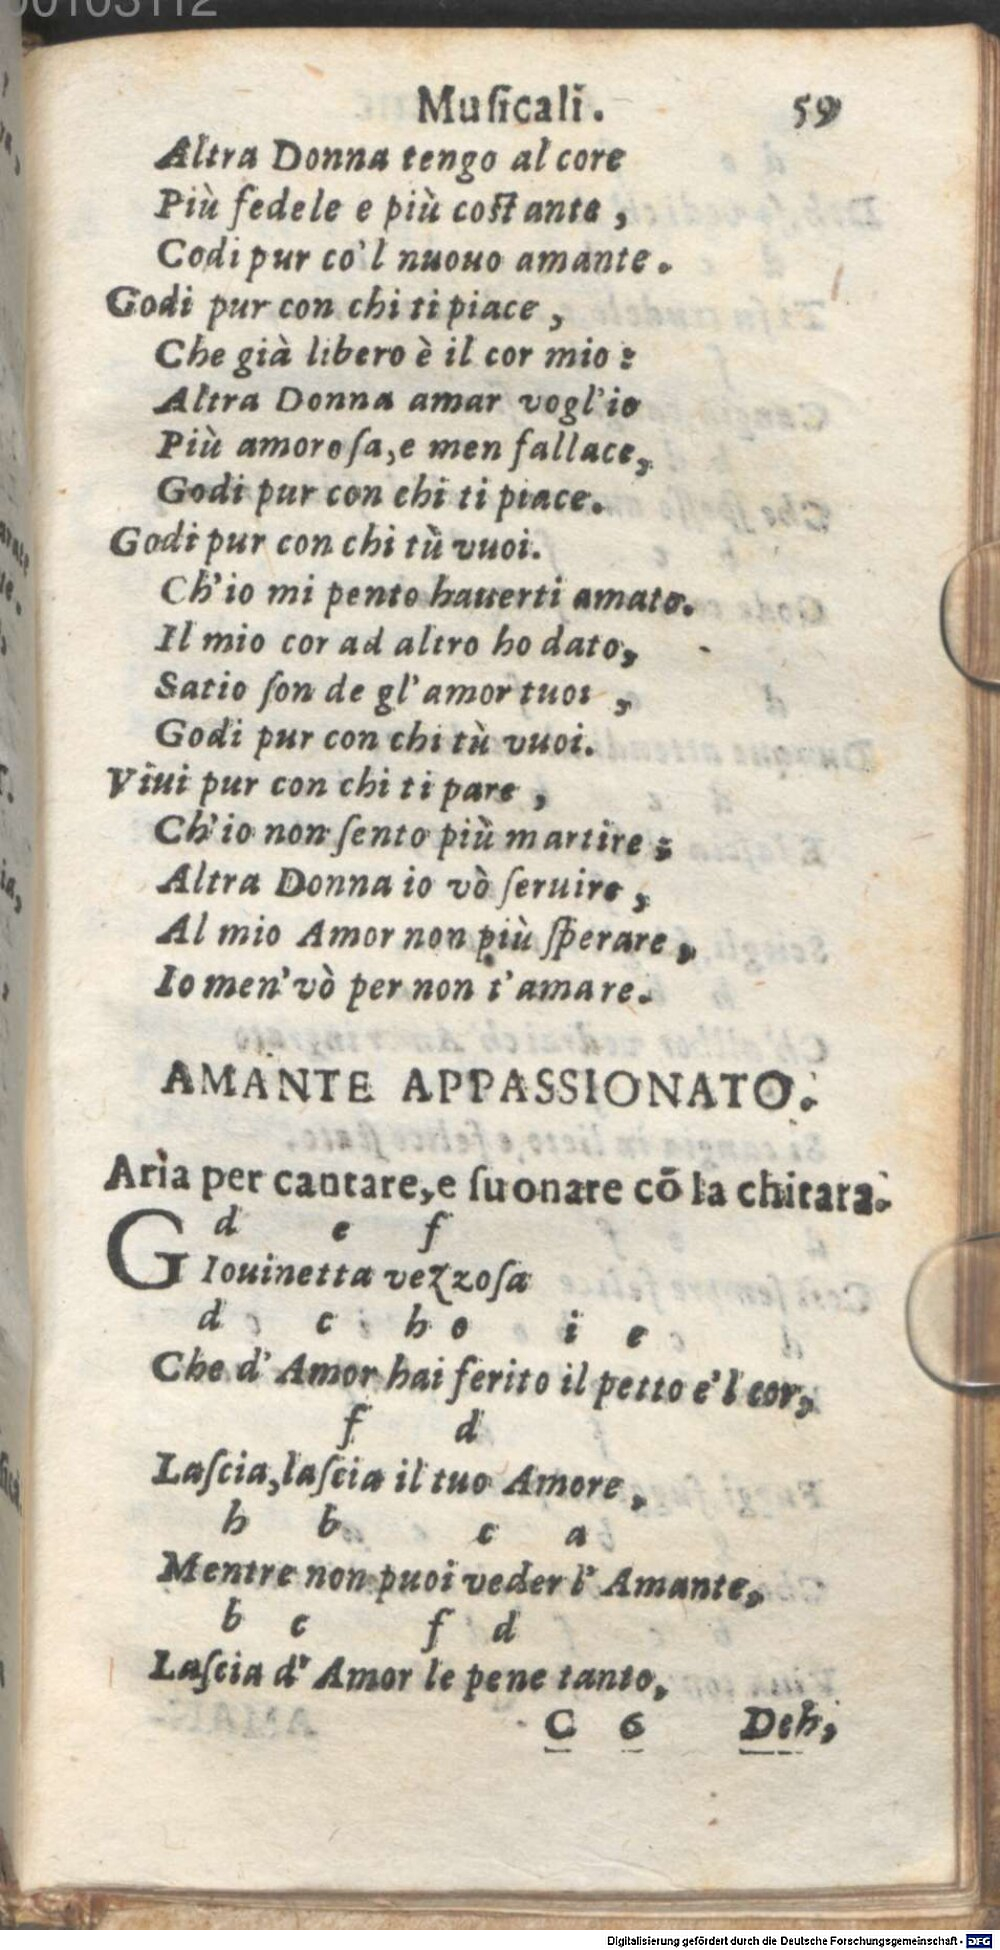 00103112
Muſicali. 59
Altra Donna tengo al core
Più fedele e più coſtante,
Codi pur co'l nuouo amante.
Godi pur con chi ti piace,
Che già libero è il cor mio:
Altra Donna amar vogl'io
Più amoroſa, e men fallace,
Godi pur con chi ti piace.
Godi pur con chi tù vuoi.
Ch'io mi pento hauerti amato.
Il mio cor ad altro ho dato,
Satio ſon de gl'amor tuoi,
Godi pur con chi tù vuoi.
Viui pur con chi ti pare,
Ch'io non ſento più martire:
Altra Donna io vò ſeruire,
Al mio Amor non più ſperare,
Io men'vò per non t'amare.
AMANTE APPASSIONATO.
Aria per cantare, e ſuonare cõ la chitara.
d e f
GIouinetta vezzoſa
d c h o i e
Che d'Amor hai ferito il petto e'l cor,
f d
Laſcia, laſcia il tuo Amore,
h b c a
Mentre non puoi veder l'Amante,
b c f d
Laſcia d'Amor le pene tanto,
C 6 Deh,
Digitalisierung gefördert durch die Deutsche Forschungsgemeinschaft - DFG